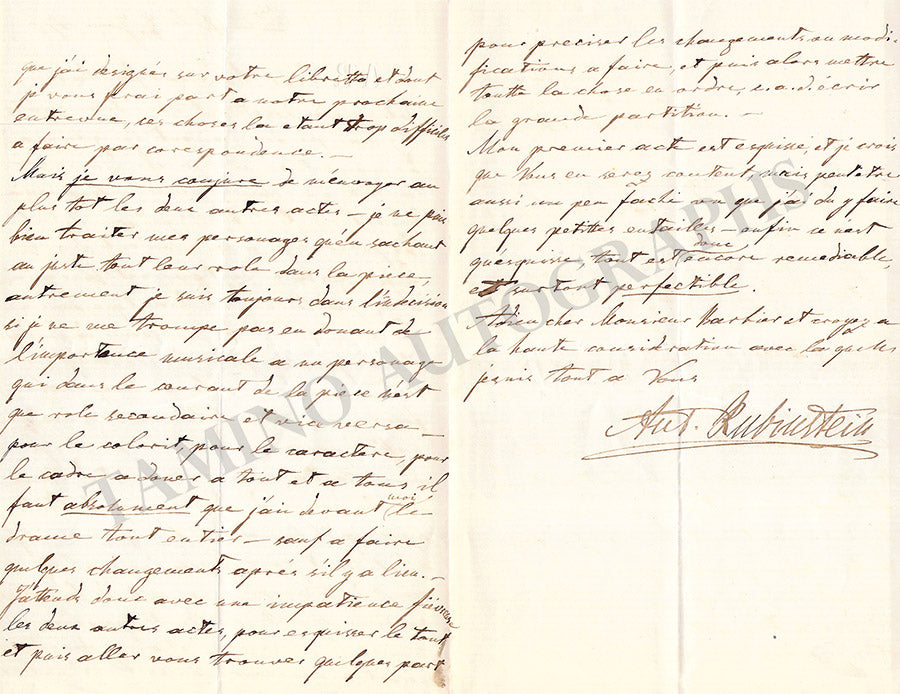 que j'ai designés sur votre libretto et dont
je vous ferai part a notre prochaine
entrevue, ces choses la etant trop difficiles
a faire par corespondence. –
Mais je vous conjure de m'envoyer au
plus tot les deux autres actes – je ne puis
bien traiter mes personages qu'en sachant
au juste tout leur role dans la pièce,
autrement je suis toujours dans l'indecision
si je ne me trompe pas en donant de
l'importence musicale a un personage
qui dans le courant de la pièce n'est
que role secondaire et vice versa –
pour le colorit, pour le caractere, pour
le cadre a doner a tout et a tous, il
faut absolument que j'aie devant moi le
drame tout entier – sauf a faire
quelques changements après s'il y a lieu. –
J'attends donc avec une impatience fiévreuse
les deux autres actes, pour esquisser le tout
et puis aller vous trouver quelque part
pour preciser les changements ou modi-
fications a faire, et puis alors mettre
toutte la chose en ordre, c.a.d. écrir
la grande partition. –
Mon premier acte est esquissé, et je crois
que Vous en serez content, mais peutetre
aussi un peu faché vu que j'ai du y faire
quelques petites entailles – enfin ce n'est
qu'esquissé, tout est donc encore remediable,
et surtout perfectible.
Adieu cher Monsieur Barbier et croyez a
la haute consideration avec laquelle
je suis tout a Vous
Ant. Rubinstein
TAMINO AUTOGRAPHS